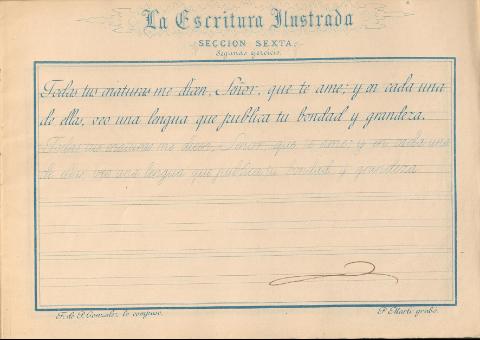 La Escritura Ilustrada
SECCION SEXTA.
Segundo ejercicio.
Todas tus criaturas me dicen, Señor, que te ame; y en cada una
de ellas, veo una lengua que publica tu bondad y grandeza.
Todas tus criaturas me dicen, Señor, que te ame; y en cada una
de ellas, veo una lengua que publica tu bondad y grandeza
F. de P. Gonzalez lo compuso.
P. Marti grabó.